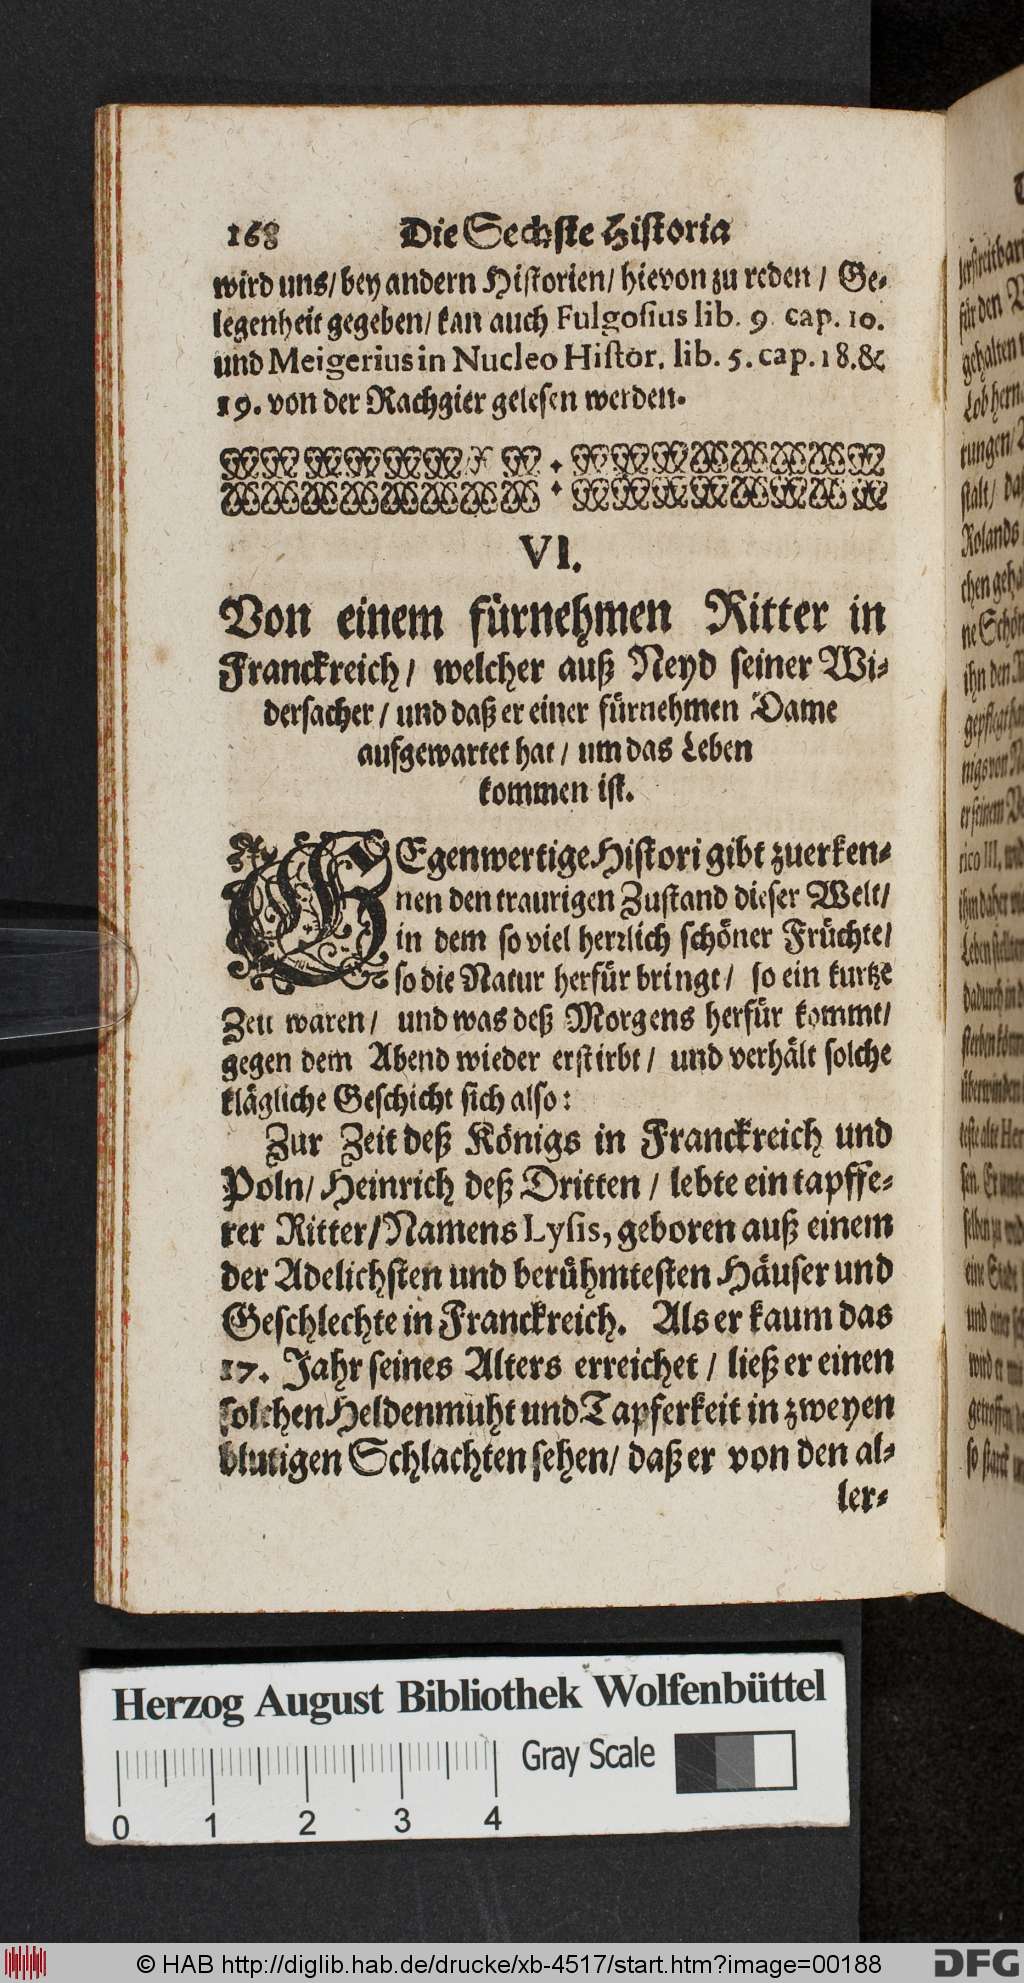 168 Die Sechste Historia
wird uns/ bey andern Historien/ hievon zu reden/ Ge-
legenheit gegeben/ kan auch Fulgosius lib. 9. cap. 10.
und Meigerius in Nucleo Histor. lib. 5. cap. 18. &
19. von der Rachgier gelesen werden.
VI.
Von einem fürnehmen Ritter in
Franckreich/ welcher auß Neyd seiner Wi-
dersacher/ und daß er einer fürnehmen Dame
aufgewartet hat/ um das Leben
kommen ist.
GEgenwertige Histori gibt zuerken-
nen den traurigen Zustand dieser Welt/
in dem so viel herrlich schöner Früchte/
so die Natur herfür bringt/ so ein kurtze
Zeit wären/ und was deß Morgens herfür kommt/
gegen dem Abend wieder erstirbt/ und verhält solche
klägliche Geschicht sich also:
Zur Zeit deß Königs in Franckreich und
Poln/ Heinrich deß Dritten/ lebte ein tapffe-
rer Ritter/ Namens Lysis, geboren auß einem
der Adelichsten und berühmtesten Häuser und
Geschlechte in Franckreich. Als er kaum das
17. Jahr seines Alters erreichet/ ließ er einen
solchen Heldenmuht und Tapferkeit in zweyen
blutigen Schlachten sehen/ daß er von den al-
ler-
Herzog August Bibliothek Wolfenbüttel
Gray Scale
0 1 2 3 4
© HAB http://diglib.hab.de/drucke/xb-4517/start.htm?image=00188
DFG